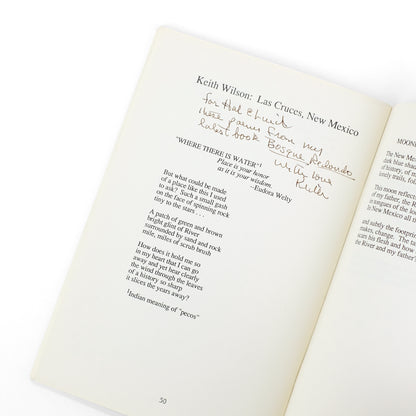 Keith Wilson: Las Cruces, New Mexico
for Hal &
these poems from my
latest book Bosque Redondo
with love
Keith
"WHERE THERE IS WATER"¹
Place is your honor
as it is your wisdom.
-Eudora Welty
But what could be made
of a place like this I used
to ask? Such a small gash
on the face of spinning rock
tiny to the stars . . .
A patch of green and brown
bright glint of River
surrounded by sand and rock
mile, miles of scrub brush
How does it hold me so
in my heart that I can go
away and yet hear clearly
the wind through the leaves
of a history so sharp
it slices the years away?
¹Indian meaning of "pecos"
50
MOON
The New Mex
dark blue shad
history, of m
lonely trails, fo
This moon reflect
of my father, the R
in tongues of the lan
in New Mexico all
and subtly the footprin
makes, change. The
scars his flesh and how
the River and my father'